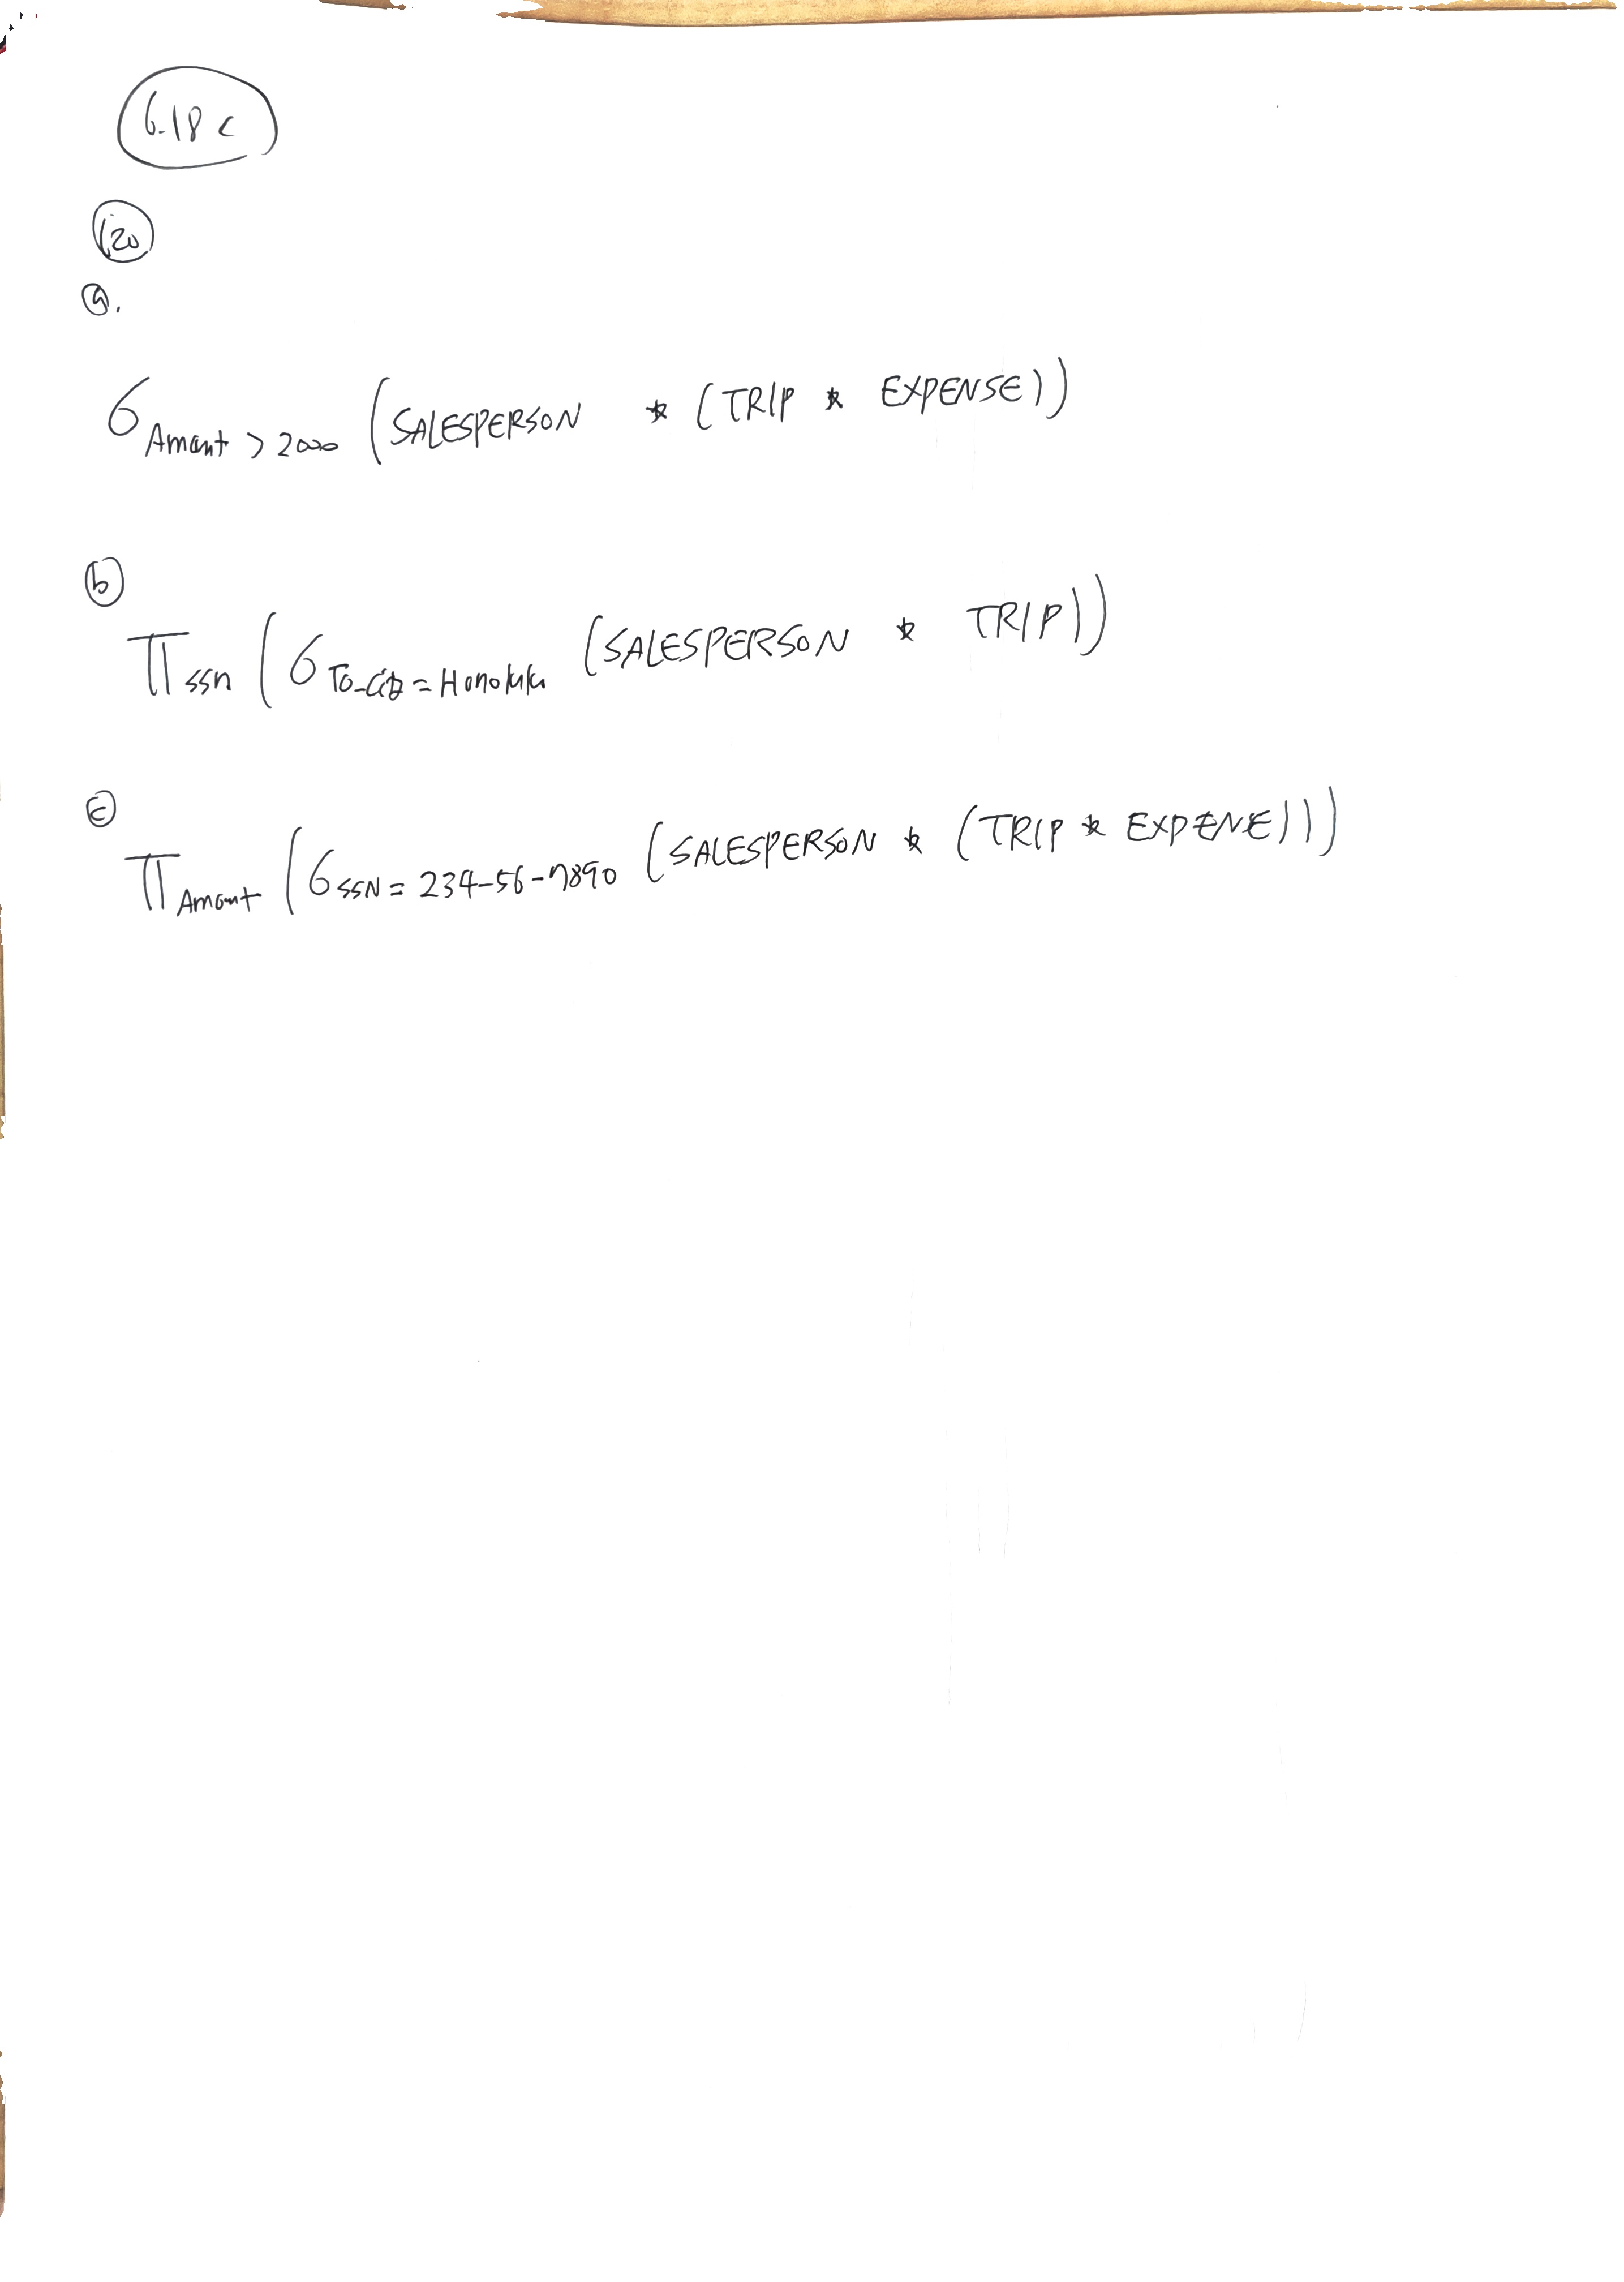 6.18 c
20
a.
σ Amount > 2000 (SALESPERSON * (TRIP * EXPENSE))
b
π ssn (σ To-City = Honolulu (SALESPERSON * TRIP))
c
π Amount (σ SSN = 234-56-7890 (SALESPERSON * (TRIP * EXPENE)))